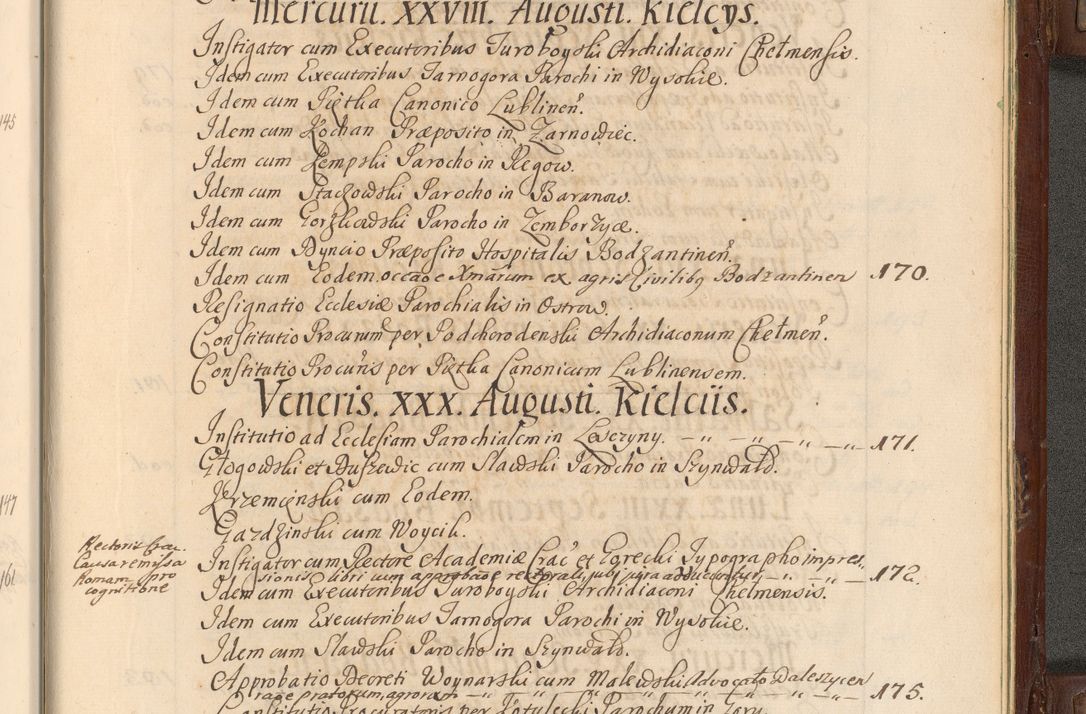 Mercurii. XXVIII. Augusti. Kielcys.
Instigator cum Executoribus Turoboyski Archidiaconi Chelmensis.
Idem cum Executoribus Tarnogora Parochi in Wysokie.
Idem cum Piętka Canonico Lublinen̄.
Idem cum Kochan Præposito in Zarnowiec.
Idem cum Kempski Parocho in Regow.
Idem cum Staczowski Parocho in Baranow.
Idem cum Gorzkowski Parocho in Zemborzyce.
Idem cum Dyncio Præposito Hospitalis Bodzantinen̄.
Idem cum Eodem occãoe Xmarum ex agris Civilibq Bodzantinen 170.
Resignatio Ecclesiæ Parochialis in Ostrow.
Constitutio Procurum per Podchorodenski Archidiaconum Chelmen̄.
Constitutio Procuris per Piętka Canonicum Lublinensem.
Veneris. XXX. Augusti. Kielciis.
Institutio ad Ecclesiam Parochialem in Łosczyny. – „ – „ – „ – „ – 171.
Głogowski et Buszewic cum Slawski Parocho in Szynwałd.
Krzemęnski cum Eodem.
Gardzinski cum Woycik.
Instigator cum Rectore Academiæ Crac̄ et Gorecki Typographo impres„
sionis libri cum approbãoe rectorali, jubi jura adducuntur – „ – „ – 172.
Rectoris Crac.
Causa remissa
Romam pro
cognitione
145
147
161
Idem cum Executoribus Turoboyski Archidiaconi Chelmensis.
Idem cum Executoribus Tarnogora Parochi in Wysokie.
Idem cum Slawski Parocho in Szynwałd.
Approbatio Decreti Woynarski cum Malewski Advocato Daleszycen
rãoe pratorum, agrorum – „ – „ – „ – „ – 175.
Constitutio Procuratoris per Kotulecki Parochum in Gory.